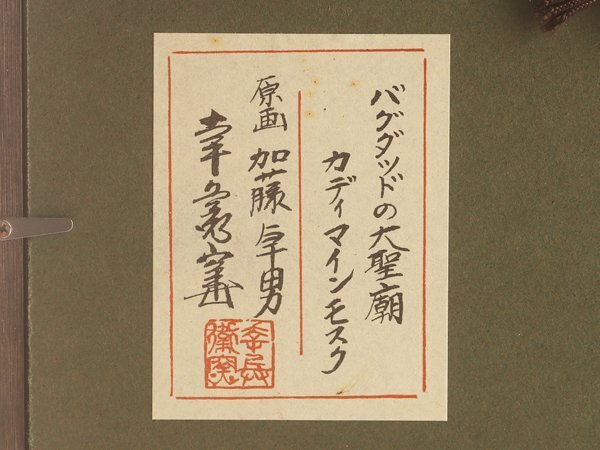 バグダッドの大聖廟
カディマインモスク
原画 加藤卓男
幸兵衛窯
幸兵衛窯